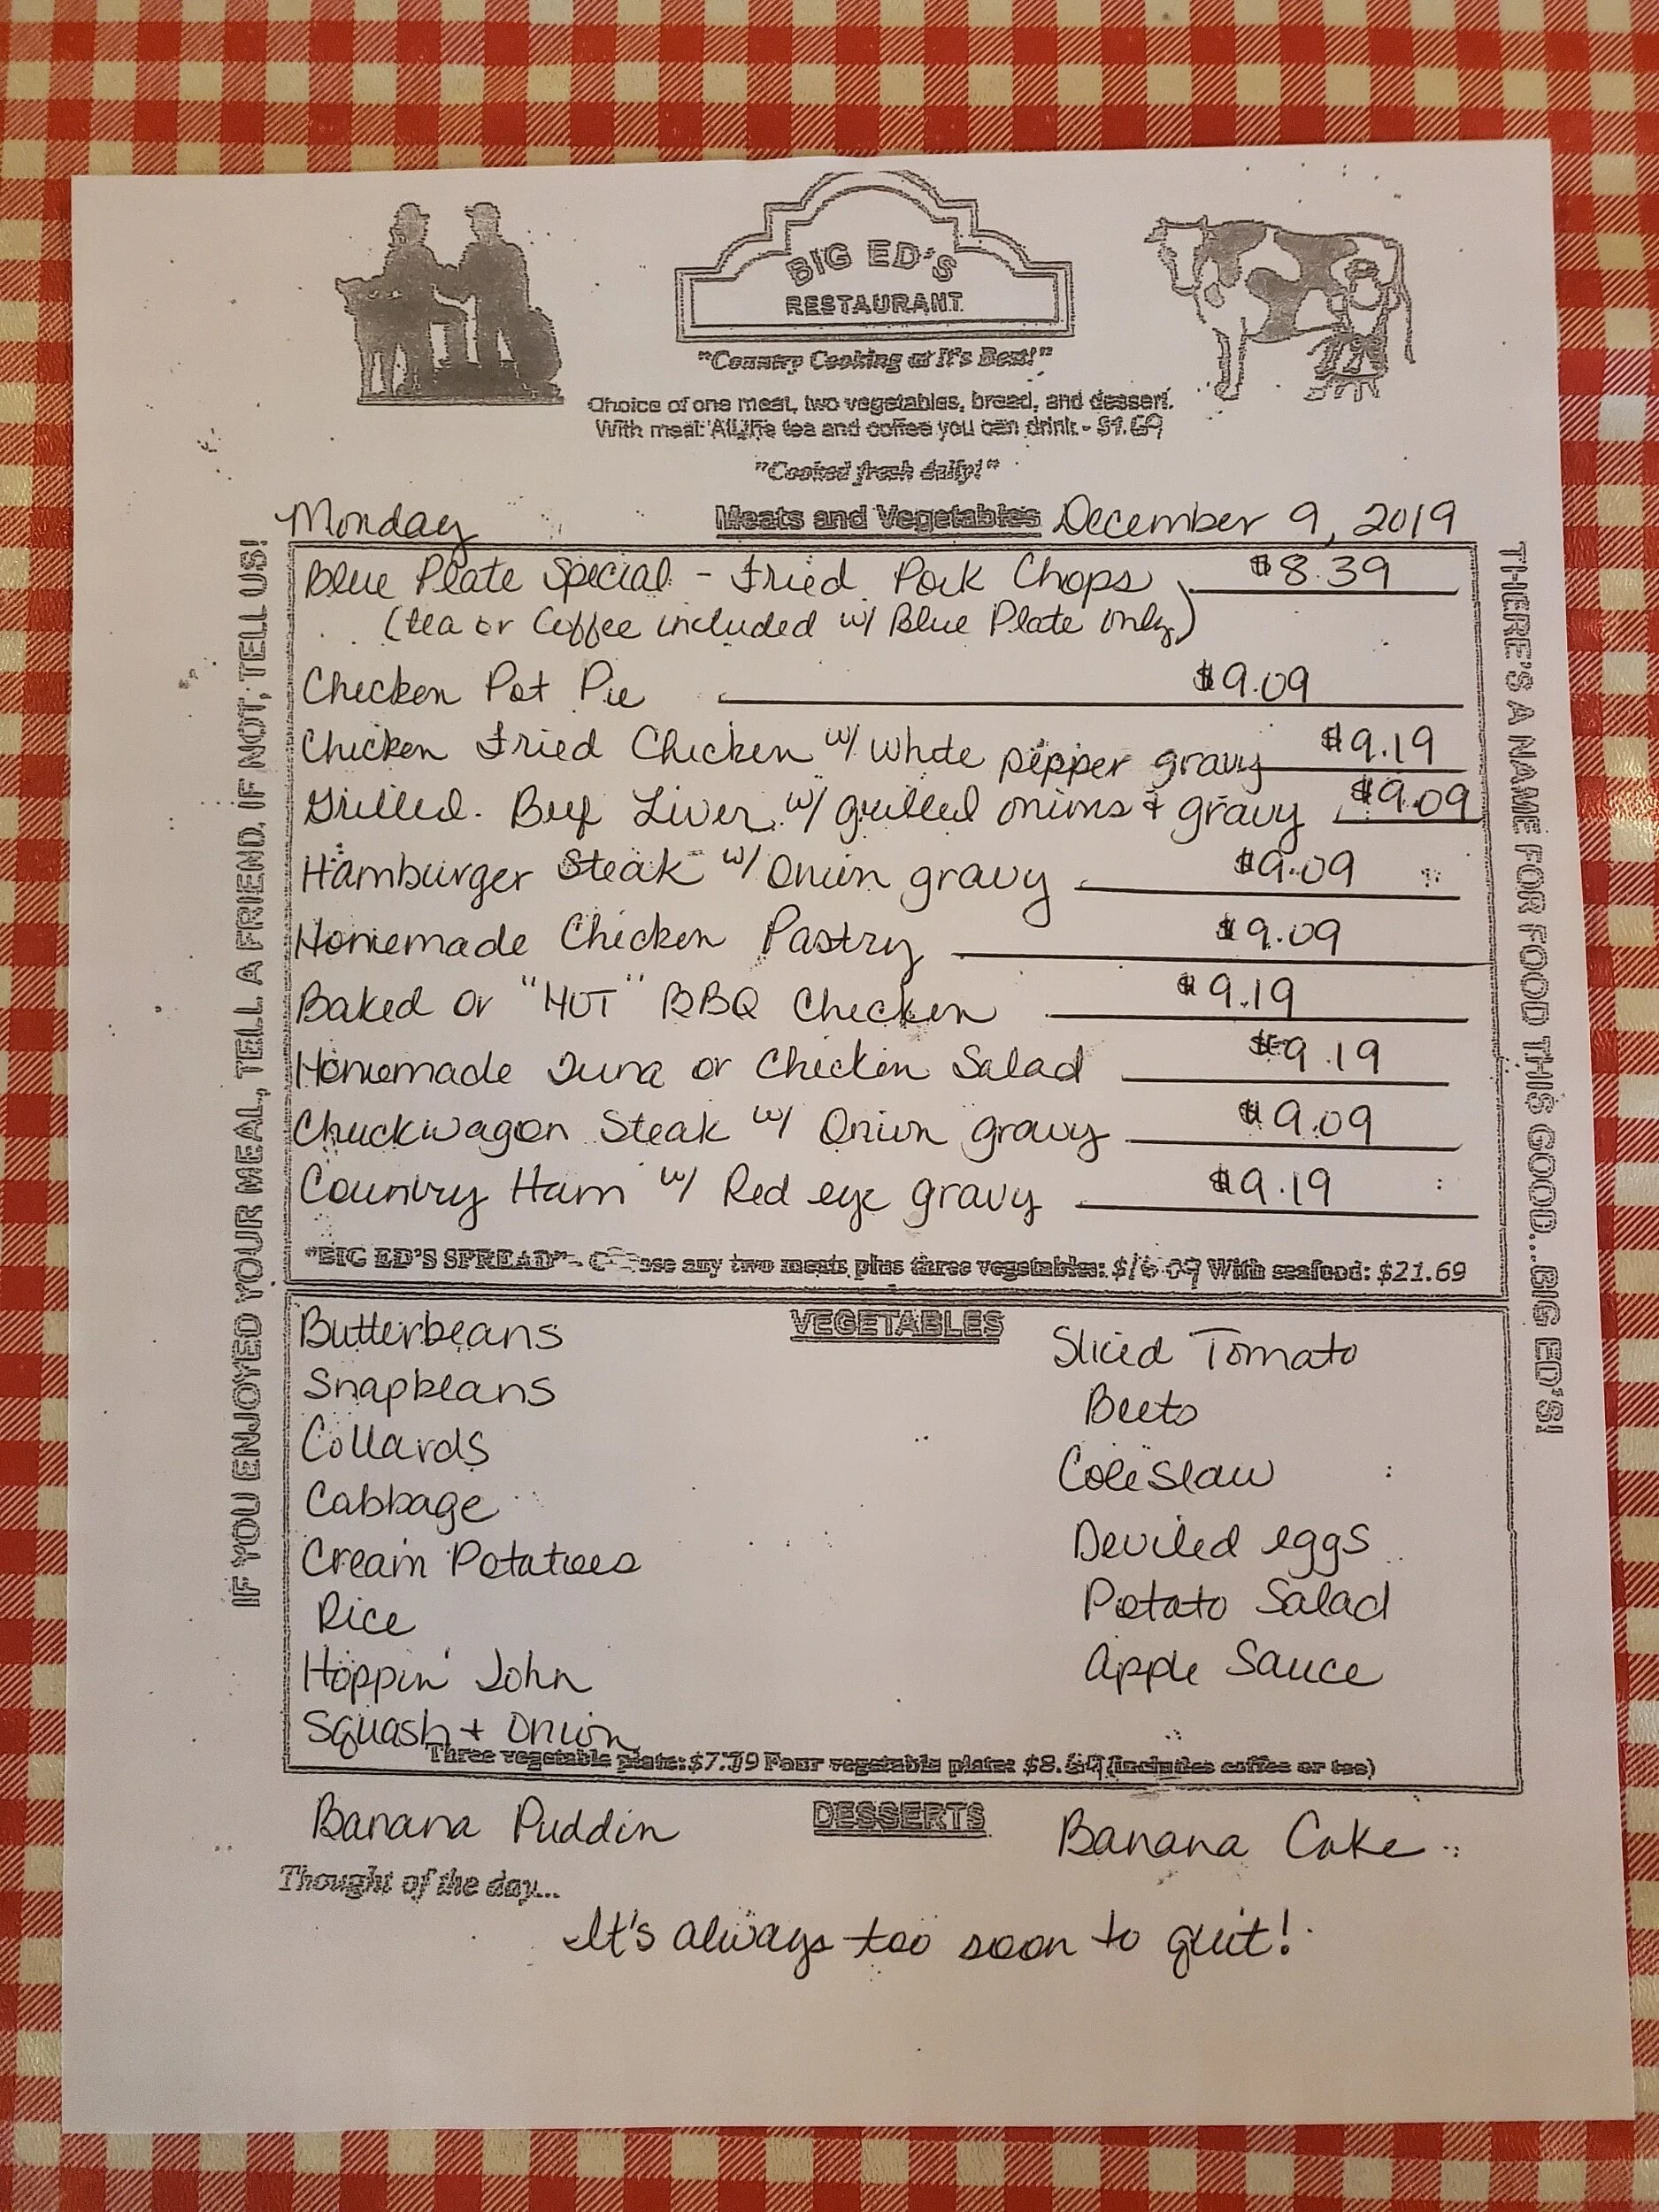 BIG ED'S
RESTAURANT
"Country Cooking at It's Best!"
Choice of one meat, two vegetables, bread, and dessert.
With meal: All the tea and coffee you can drink - $1.69
"Cooked fresh daily!"
Monday Meats and Vegetables December 9, 2019
Blue Plate Special - Fried Pork Chops $8.39
(tea or Coffee included w/ Blue Plate only)
Chicken Pot Pie $9.09
Chicken Fried Chicken w/ White pepper gravy $9.19
Grilled Beef Liver w/ grilled onions + gravy $9.09
Hamburger Steak w/ Onion gravy $9.09
Homemade Chicken Pastry $9.09
Baked or "HOT" BBQ Chicken $9.19
Homemade Tuna or Chicken Salad $9.19
Chuckwagon Steak w/ Onion gravy $9.09
Country Ham w/ Red eye gravy $9.19
"BIG ED'S SPREAD" - Choose any two meats plus three vegetables: With seafood: $21.69
VEGETABLES
Butterbeans
Snapbeans
Collards
Cabbage
Cream Potatoes
Rice
Hoppin' John
Squash + Onion
Sliced Tomato
Beets
Cole Slaw
Deviled eggs
Potato Salad
Apple Sauce
Three vegetable plate: Four vegetable plate: (includes coffee or tea)
DESSERTS
Banana Puddin
Banana Cake
Thought of the day...
It's always too soon to quit!
IF YOU ENJOYED YOUR MEAL, TELL A FRIEND, IF NOT; TELL US!
THERE'S A NAME FOR FOOD THIS GOOD...BIG ED'S!